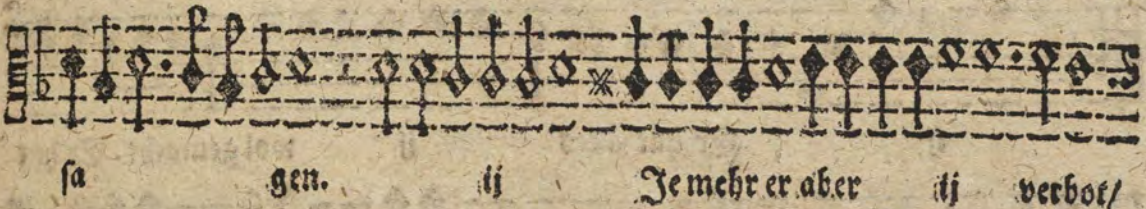 ſa gen. ij Je mehr er aber ij verbot/